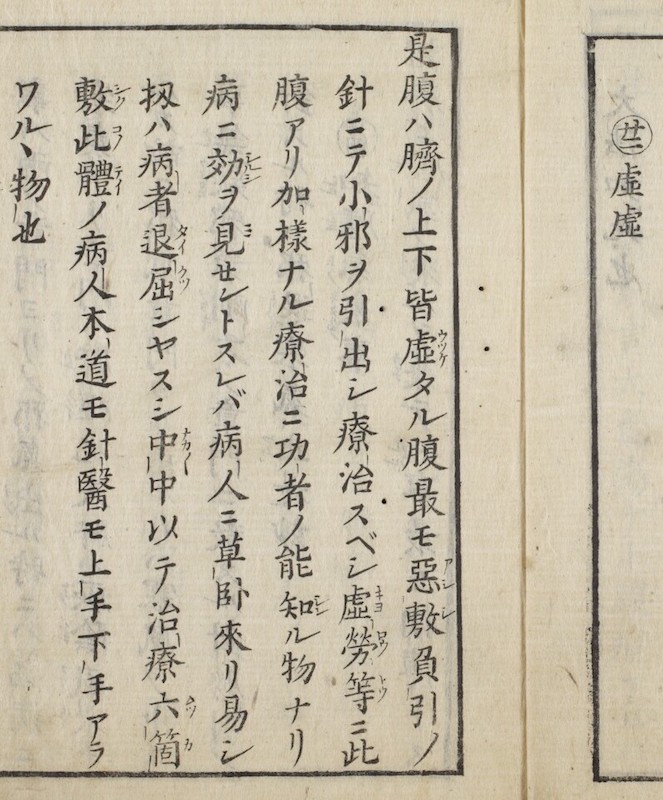 ㊁虛虛
是腹ハ臍ノ上下皆虛タル腹最モ惡敷負引ノ
針ニテ小邪ヲ引出シ療治スベシ虛勞等ニ此
腹アリ加樣ナル療治ニ功者ノ能知ル物ナリ
病ニ効ヲ見せントスレバ病人ニ草臥來リ易シ
扨ハ病者退屈シヤスシ中中以テ治療六箇
敷此體ノ病人本道モ針醫モ上手下手アラ
ワルヽ物也